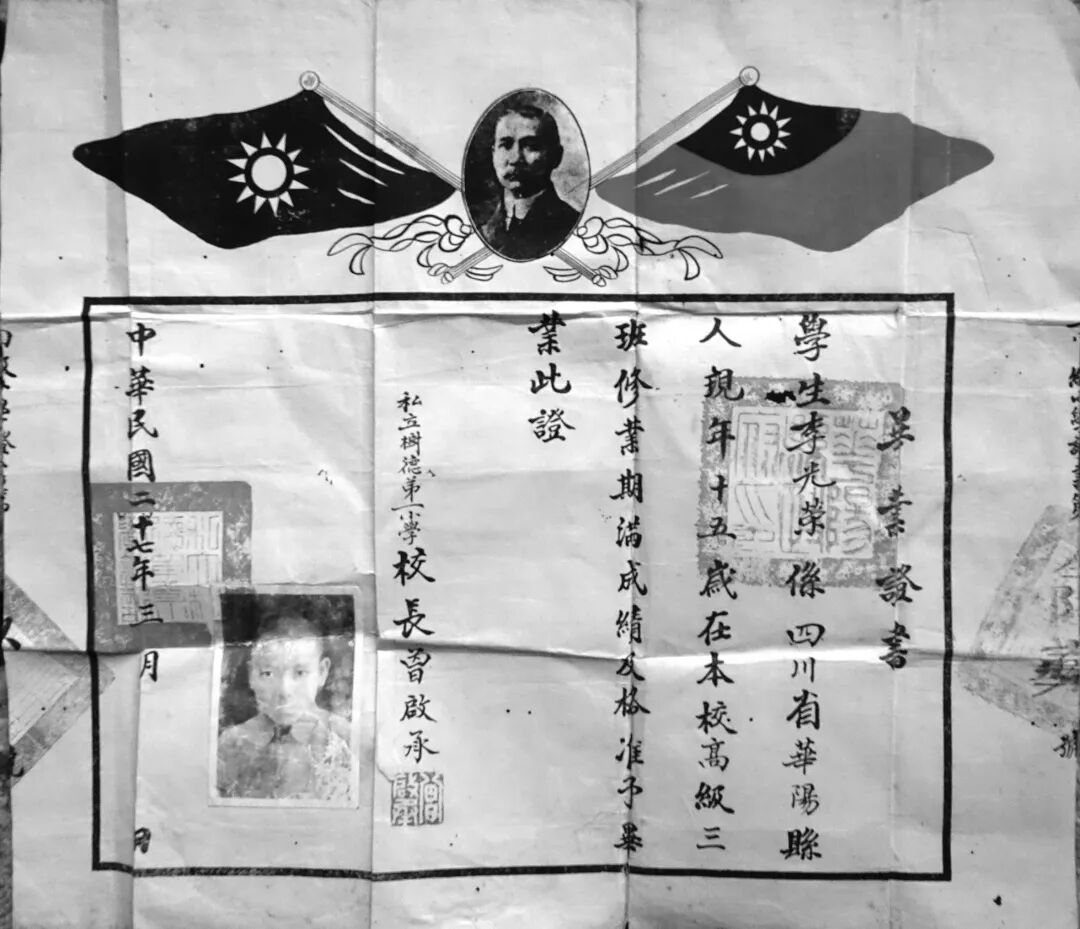 畢業證書
學生李光榮係四川省華陽縣
人現年十五歲在本校高級三
班修業期滿成績及格准予畢
業此證
私立樹德第一小學校長曾啟承
中華民國二十七年三月 日
號